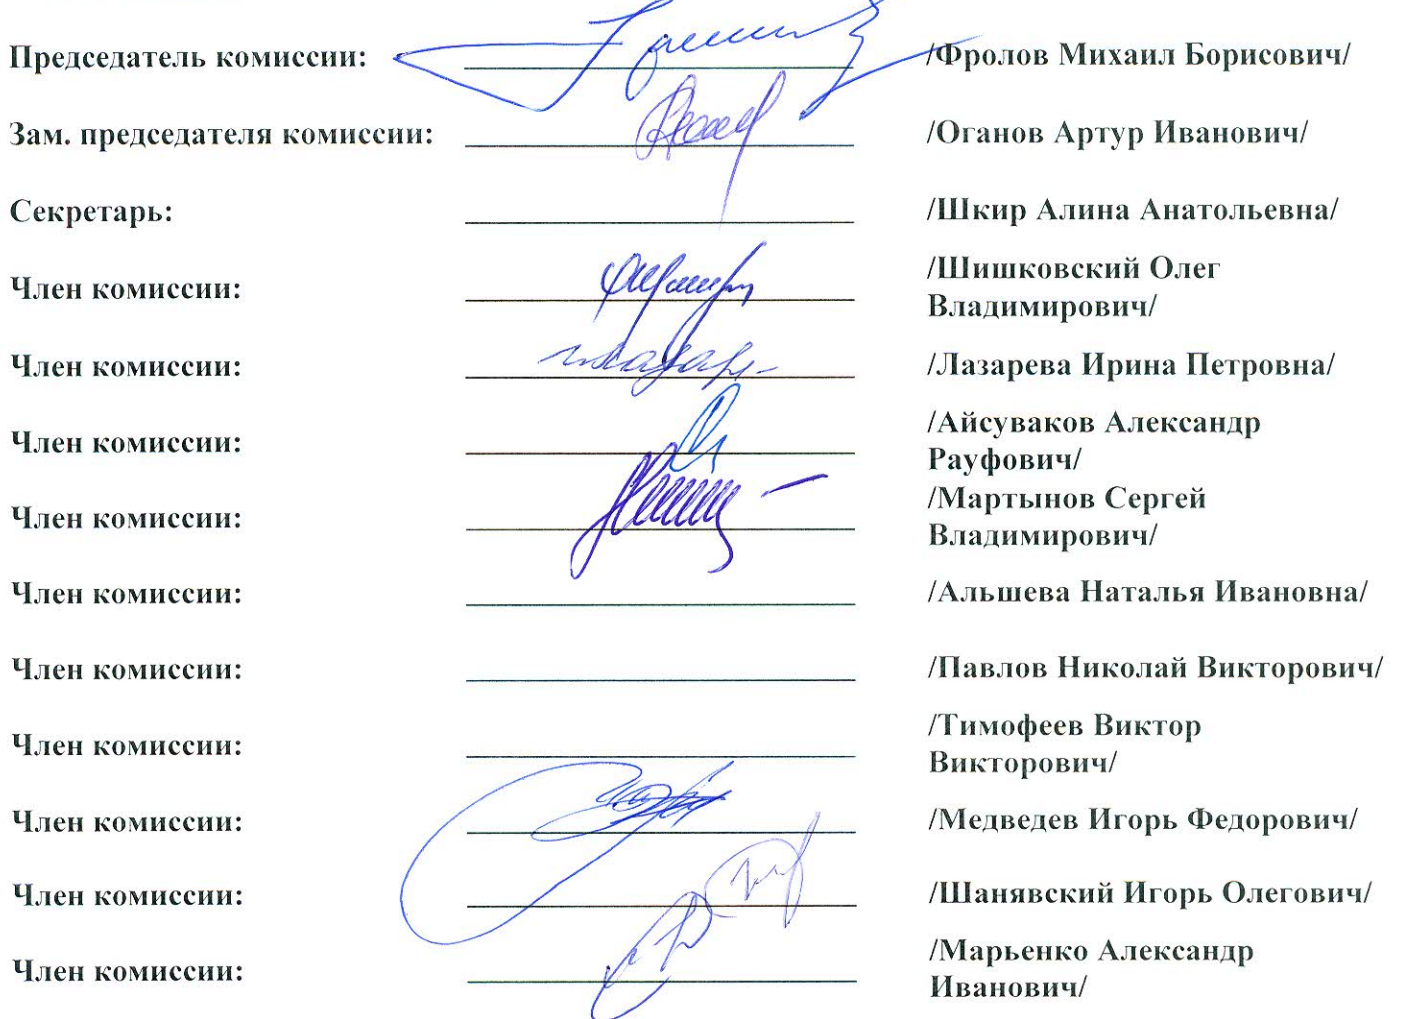 Председатель комиссии: /Фролов Михаил Борисович/
Зам. председателя комиссии: /Оганов Артур Иванович/
Секретарь: /Шкир Алина Анатольевна/
Член комиссии: /Шишковский Олег
Владимирович/
Член комиссии: /Лазарева Ирина Петровна/
Член комиссии: /Айсуваков Александр
Рауфович/
Член комиссии: /Мартынов Сергей
Владимирович/
Член комиссии: /Альшева Наталья Ивановна/
Член комиссии: /Павлов Николай Викторович/
Член комиссии: /Тимофеев Виктор
Викторович/
Член комиссии: /Медведев Игорь Федорович/
Член комиссии: /Шанявский Игорь Олегович/
Член комиссии: /Марьенко Александр
Иванович/